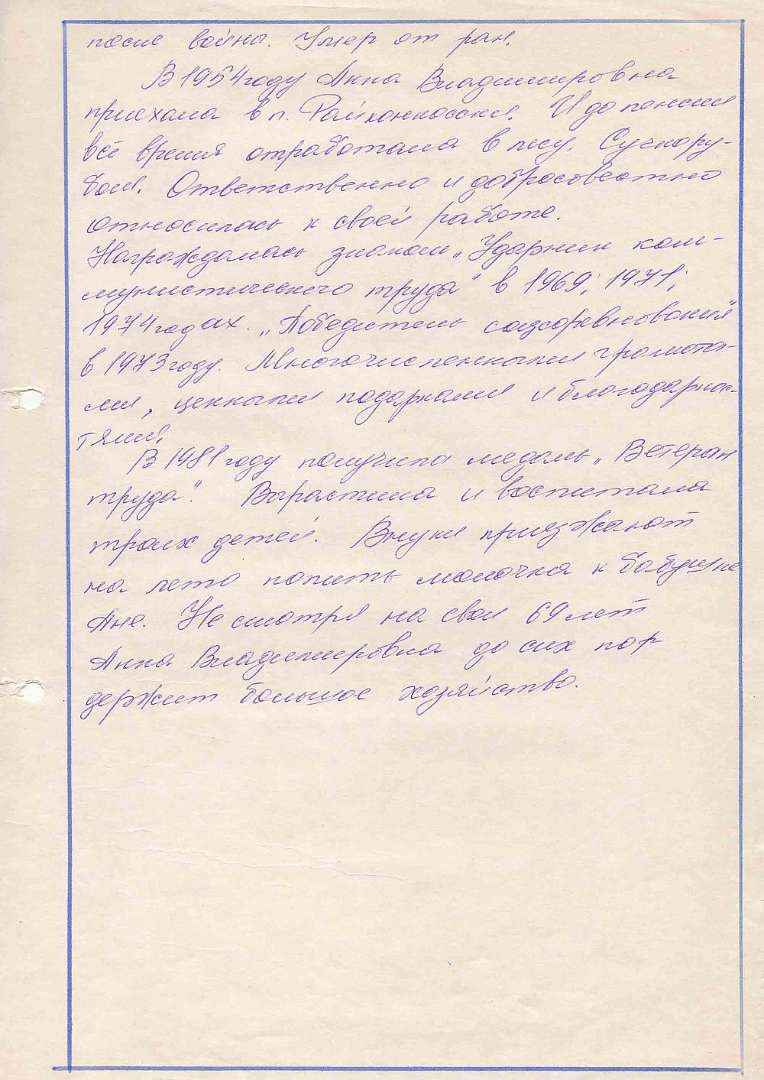 после войны. Умер от ран.
В 1954 году Анна Владимировна
приехала в п. Райконкоски. И до пенсии
всё время отработала в лесу. Сучкору-
бом. Ответственно и добросовестно
относилась к своей работе.
Награждалась знаком „Ударник ком-
мунистического труда" в 1969; 1971;
1974 годах. „Победитель соцсоревнования"
в 1973 году. Многочисленными грамота-
ми, ценными подарками и благодарнос-
тями.
В 1981 году получила медаль „Ветеран
труда". Вырастила и воспитала
троих детей. Внуки приезжают
на лето попить молочка к бабушке
Ане. Не смотря на свои 69 лет
Анна Владимировна до сих пор
держит большое хозяйство.